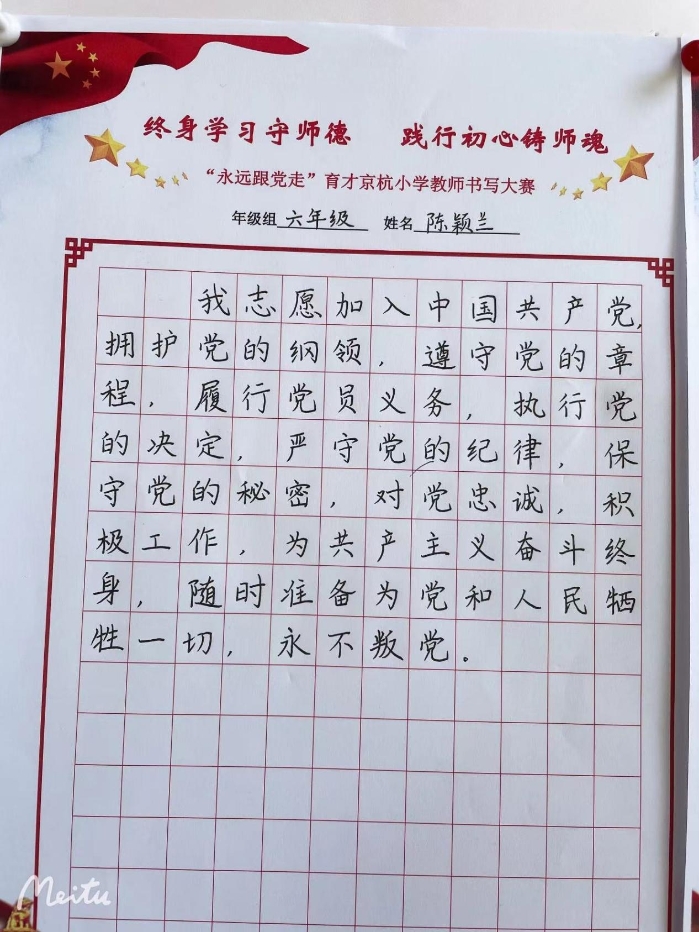 终身学习守师德 践行初心铸师魂
“永远跟党走”育才京杭小学教师书写大赛
年级组 六年级 姓名 陈颖兰
我志愿加入中国共产党,
拥护党的纲领,遵守党的章
程,履行党员义务,执行党
的决定,严守党的纪律,保
守党的秘密,对党忠诚,积
极工作,为共产主义奋斗终
身,随时准备为党和人民牺
牲一切,永不叛党。
Meitu